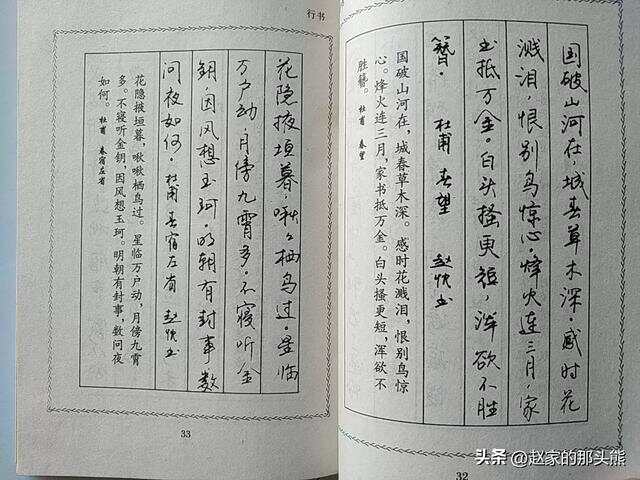 国破山河在,城春草木深。感时花
溅泪,恨别鸟惊心。烽火连三月,家
书抵万金。白头搔更短,浑欲不胜
簪。 杜甫 春望 书
国破山河在,城春草木深。感时花溅泪,恨别鸟惊
心。烽火连三月,家书抵万金。白头搔更短,浑欲不
胜簪。 杜甫 春望
32
行书
花隐掖垣暮,啾々栖鸟过。星临
万户动,月傍九霄多。不寝听金
钥,因风想玉珂。明朝有封事数
问夜如何。杜甫春宿左省 书
花隐掖垣暮,啾啾栖鸟过。星临万户动,月傍九霄
多。不寝听金钥,因风想玉珂。明朝有封事,数问夜
如何。 杜甫 春宿左省
33
头条 @赵家的那头熊